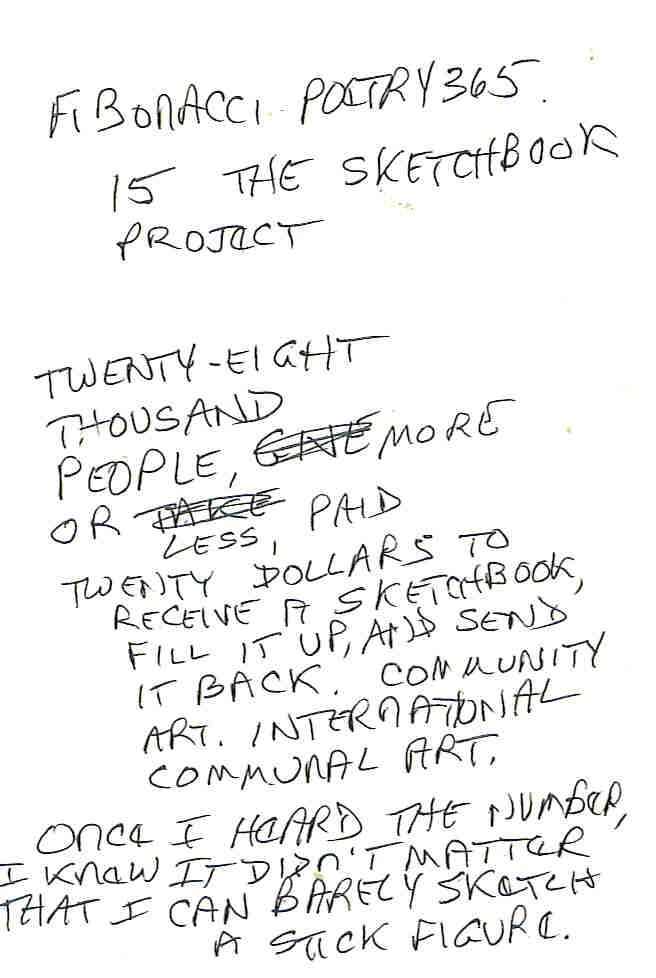 FIBONACCI POETRY 365.
15 THE SKETCHBOOK
PROJECT
TWENTY-EIGHT
THOUSAND
PEOPLE, GIVE MORE
OR TAKE PAID
LESS,
TWENTY DOLLARS TO
RECEIVE A SKETCHBOOK,
FILL IT UP, AND SEND
IT BACK. COMMUNITY
ART. INTERNATIONAL
COMMUNAL ART.
ONCE I HEARD THE NUMBER,
I KNEW IT DIDN'T MATTER
THAT I CAN BARELY SKETCH
A STICK FIGURE.